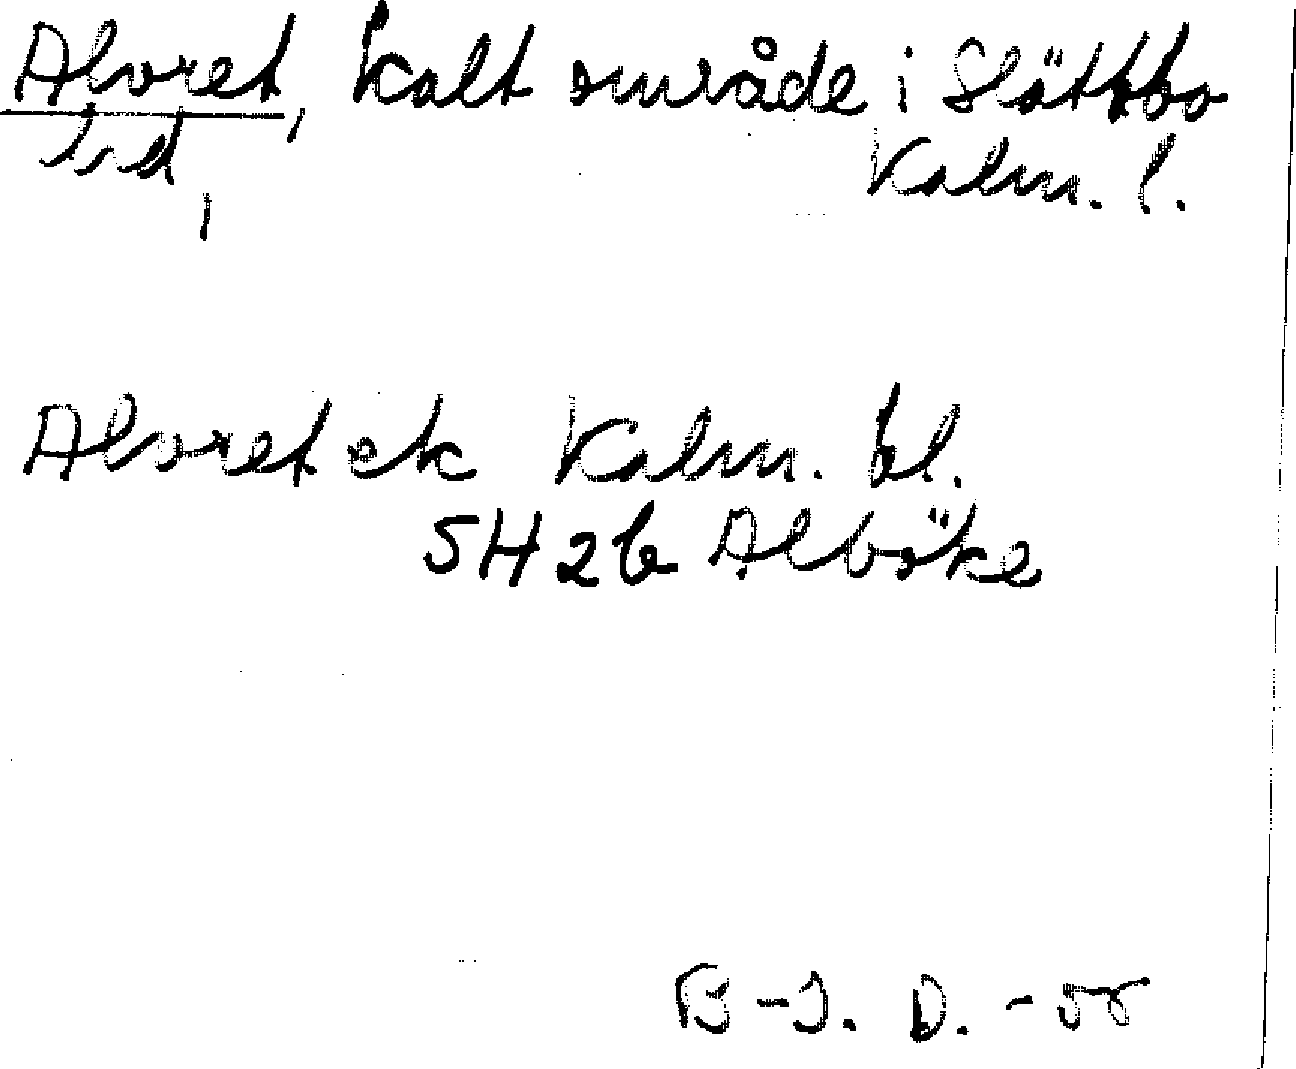 Alvret, kalt område i Slättbo
hd, Kalm. l.
Alvret ek Kalm. bl.
5H2b Alböke
B-J. D. -55